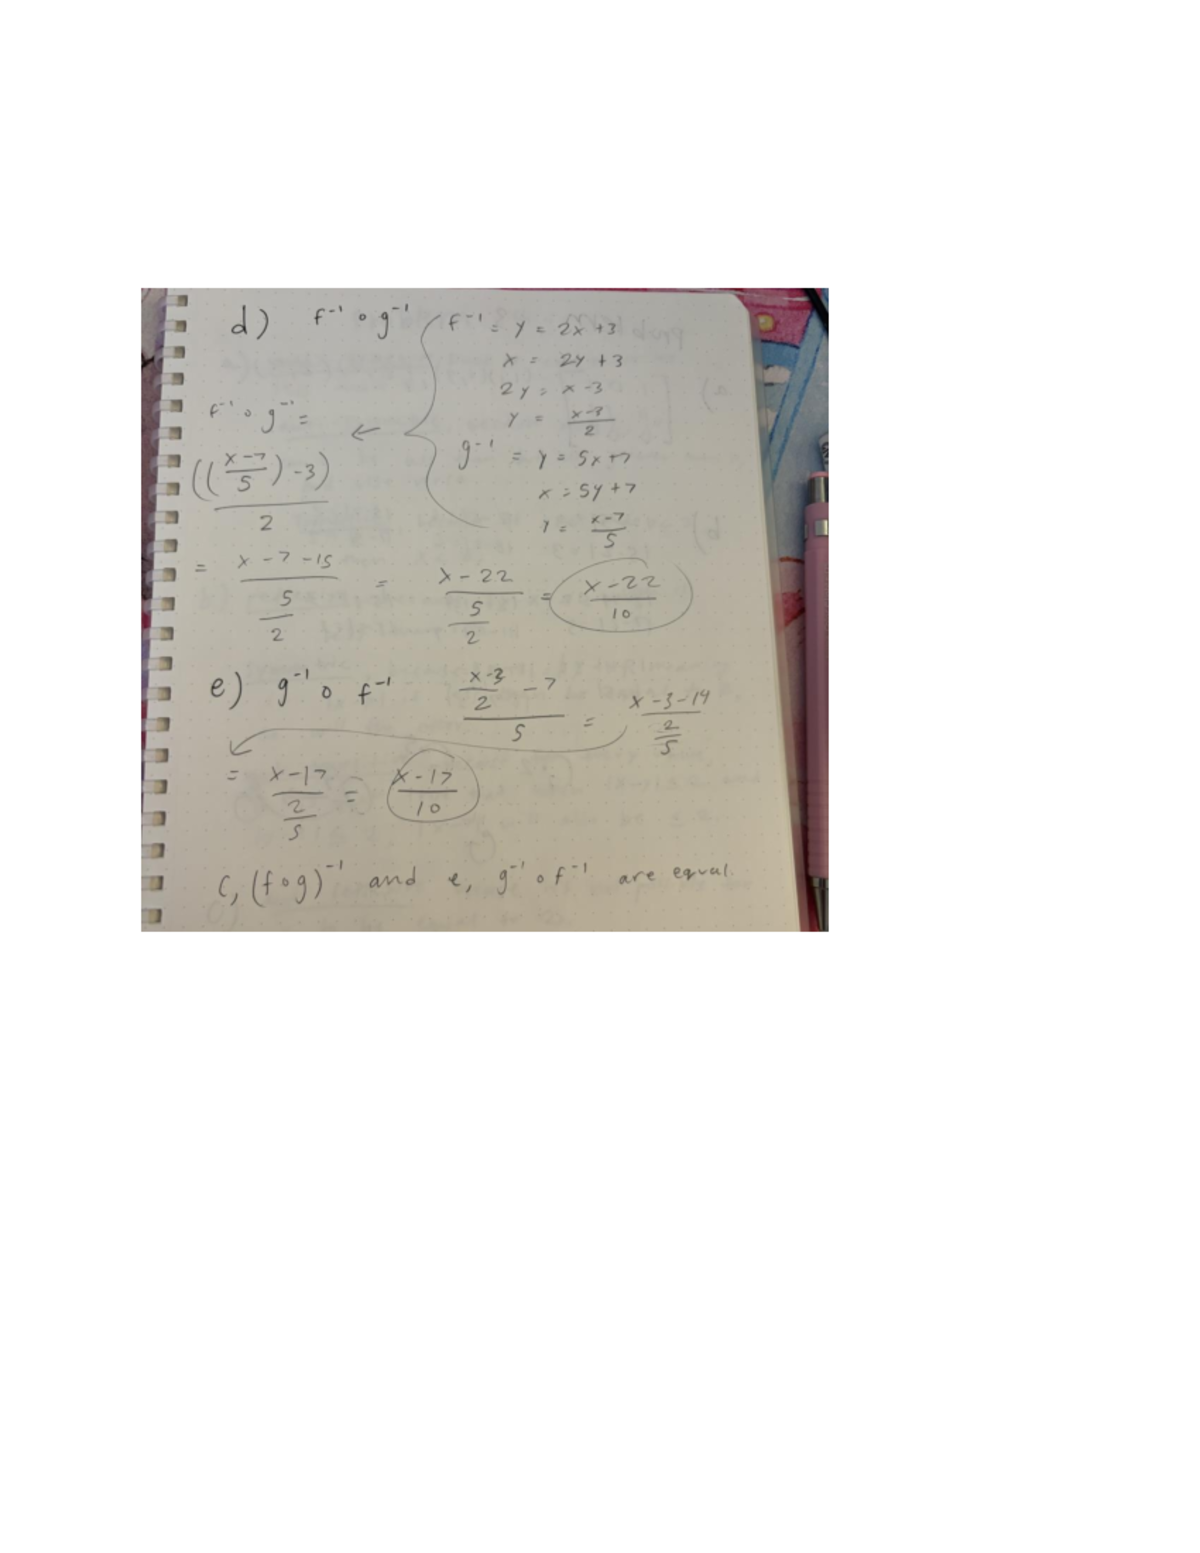 d) f⁻¹ ∘ g⁻¹
f⁻¹ = y = 2x +3
x = 2y +3
2y = x -3
y = x-3/2
g⁻¹ = y = 5x+7
x = 5y +7
y = x-7/5
f⁻¹ ∘ g⁻¹ =
((x-7/5) -3)/2
= x -7 -15/5/2 = x -22/5/2 = x -22/10
e) g⁻¹ ∘ f⁻¹ x-3/2 -7/5 = x -3 -14/2/5
= x-17/2/5 = x-17/10
C, (f∘g)⁻¹ and e, g⁻¹ ∘ f⁻¹ are equal.